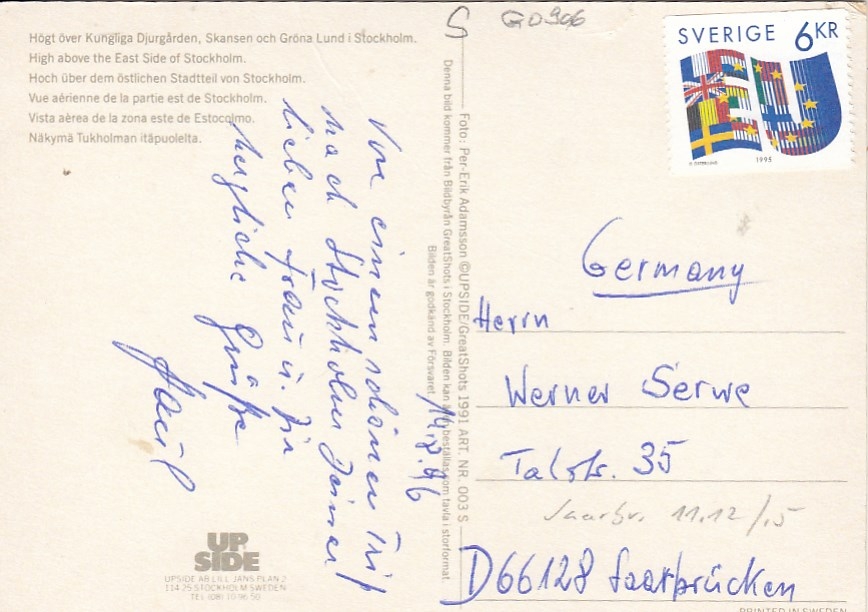 Högt över Kungliga Djurgården, Skansen och Gröna Lund i Stockholm.
High above the East Side of Stockholm.
Hoch über dem östlichen Stadtteil von Stockholm.
Vue aérienne de la partie est de Stockholm.
Vista aèrea de la zona este de Estocolmo.
Näkymä Tukholman itäpuolelta.
Von einem schönen Trip
nach Stockholm Deiner
lieben Frau u. Dir
herzliche Grüße
14.8.96
UP
SIDE
UPSIDE AB LILL JANS PLAN 2
114 25 STOCKHOLM SWEDEN
TEL (08) 10 96 50
Foto: Per-Erik Adamsson ©UPSIDE/GreatShots 1991 ART. NR. 003 S
Denna bild kommer från Bildbyrån GreatShots i Stockholm. Bilden kan beställas som tavla i storformat.
Bilden är godkänd av Försvaret.
S
GD906
SVERIGE 6KR
EU
1995
Germany
Herrn
Werner Serwe
Talstr. 35
Saarbr. 11,12/,15
D66128 Saarbrücken
PRINTED IN SWEDEN